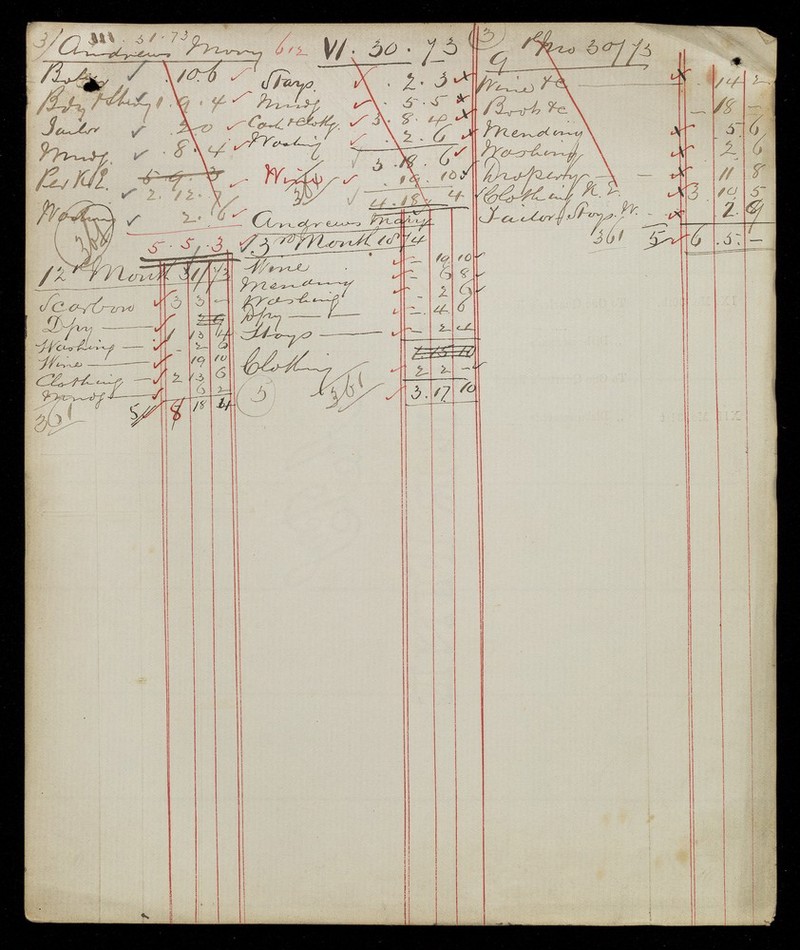 3/ Andrews Mary 612
III . 31 . 73
10. 6
1. 9. 4
Tailor 2 0
8. 4
5. 9. 3
2. 12. 7
Washing 2. 6
361
5. 5. 3
12th Month 31/73
3 3 –
Dpy 2 9
1 13 4
Washing – 2 6
Wine 19 10
Clothing 2 13 6
6 2
361 5/ 8 18 4
VI . 30 . 73
Stays 2. 3
5. 5
3. 8. 4
Washing 2. 6
3. 18. 6
Wine 19. 10
361
4. 18. 4
Andrews Mary
3rd Month 1874
Wine – 19 10
Mending – 6 8
Washing – 2 6
Dpy – 4 6
Stays – 2 4
1. 15. 10
Clothing 2 2 –
5 361 3. 17 10
3
9 Mo 30/73
Wine &c 14 2
Boots &c – 18 –
Mending 5 6
Washing 2 6
Property – 11 8
Clothing 3 10 5
Tailor Stays W. – 2. 9
361 5 6. 5. –